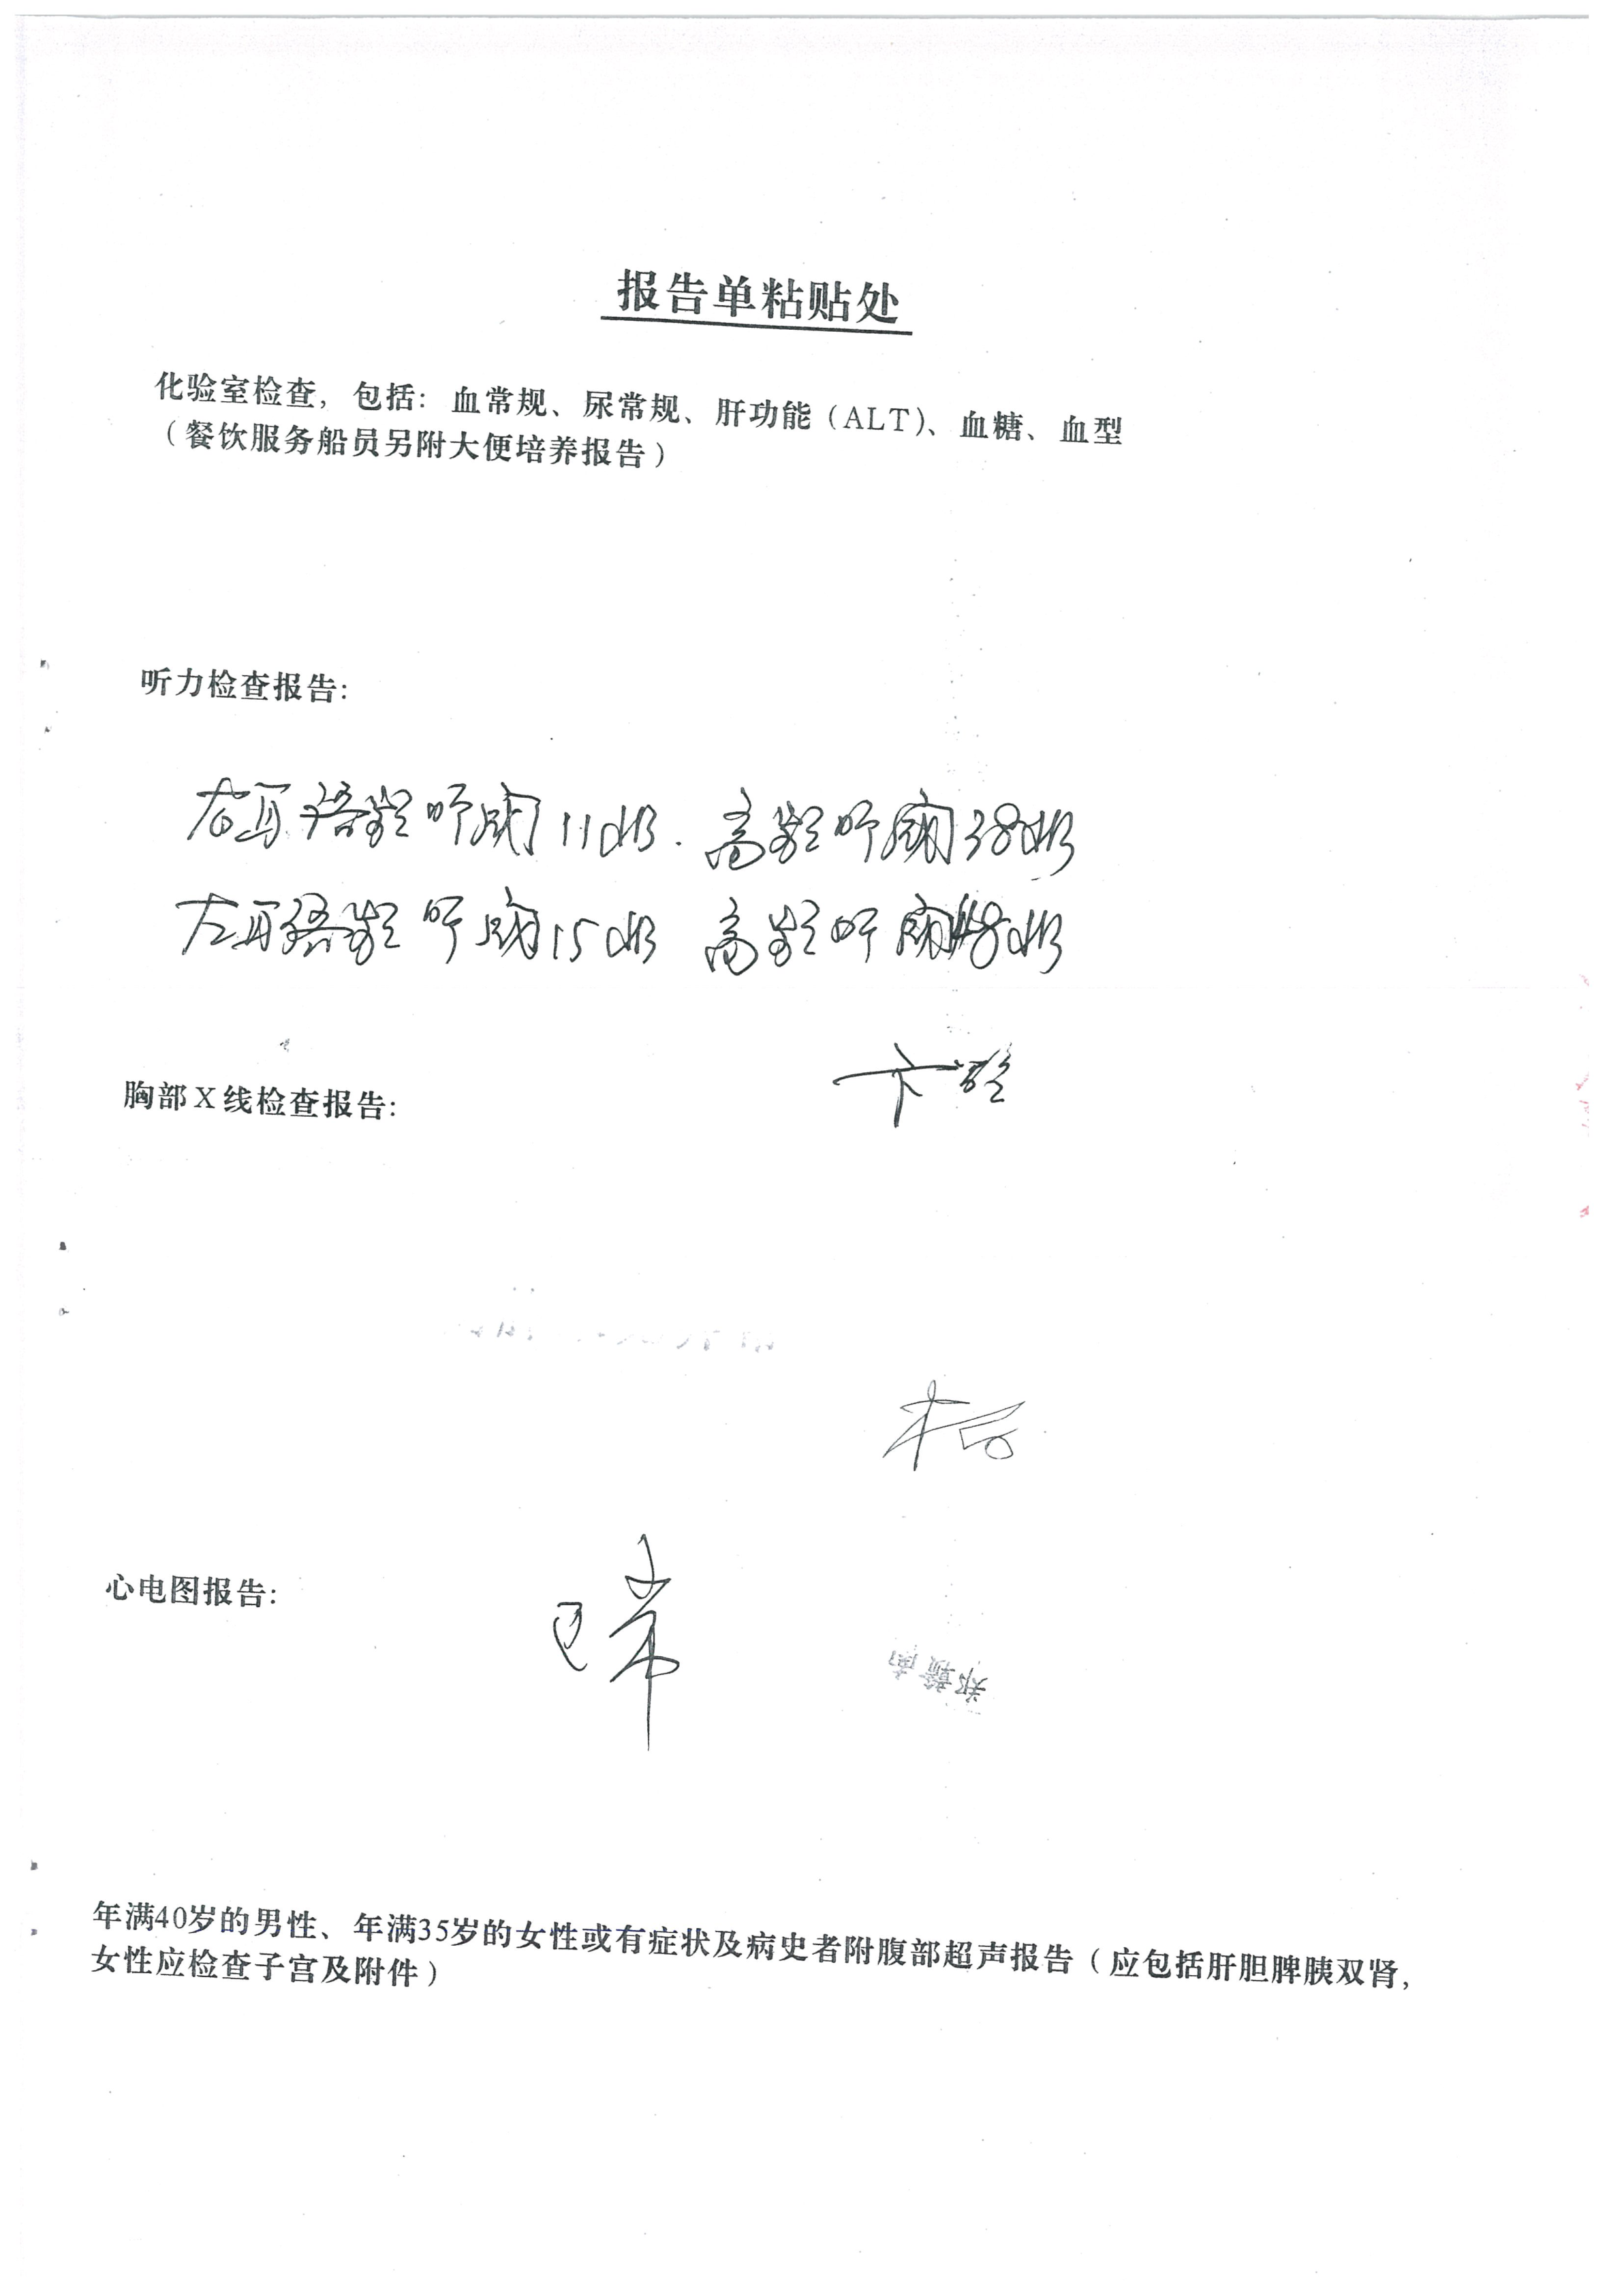 报告单粘贴处
化验室检查，包括：血常规、尿常规、肝功能（ALT）、血糖、血型
（餐饮服务船员另附大便培养报告）
听力检查报告：
右耳语频听阈11dB．高频听阈38dB
左耳语频听阈15dB 高频听阈48dB
胸部X线检查报告：
心电图报告：
正常
郑赣南
年满40岁的男性、年满35岁的女性或有症状及病史者附腹部超声报告（应包括肝胆脾胰双肾，
女性应检查子宫及附件）